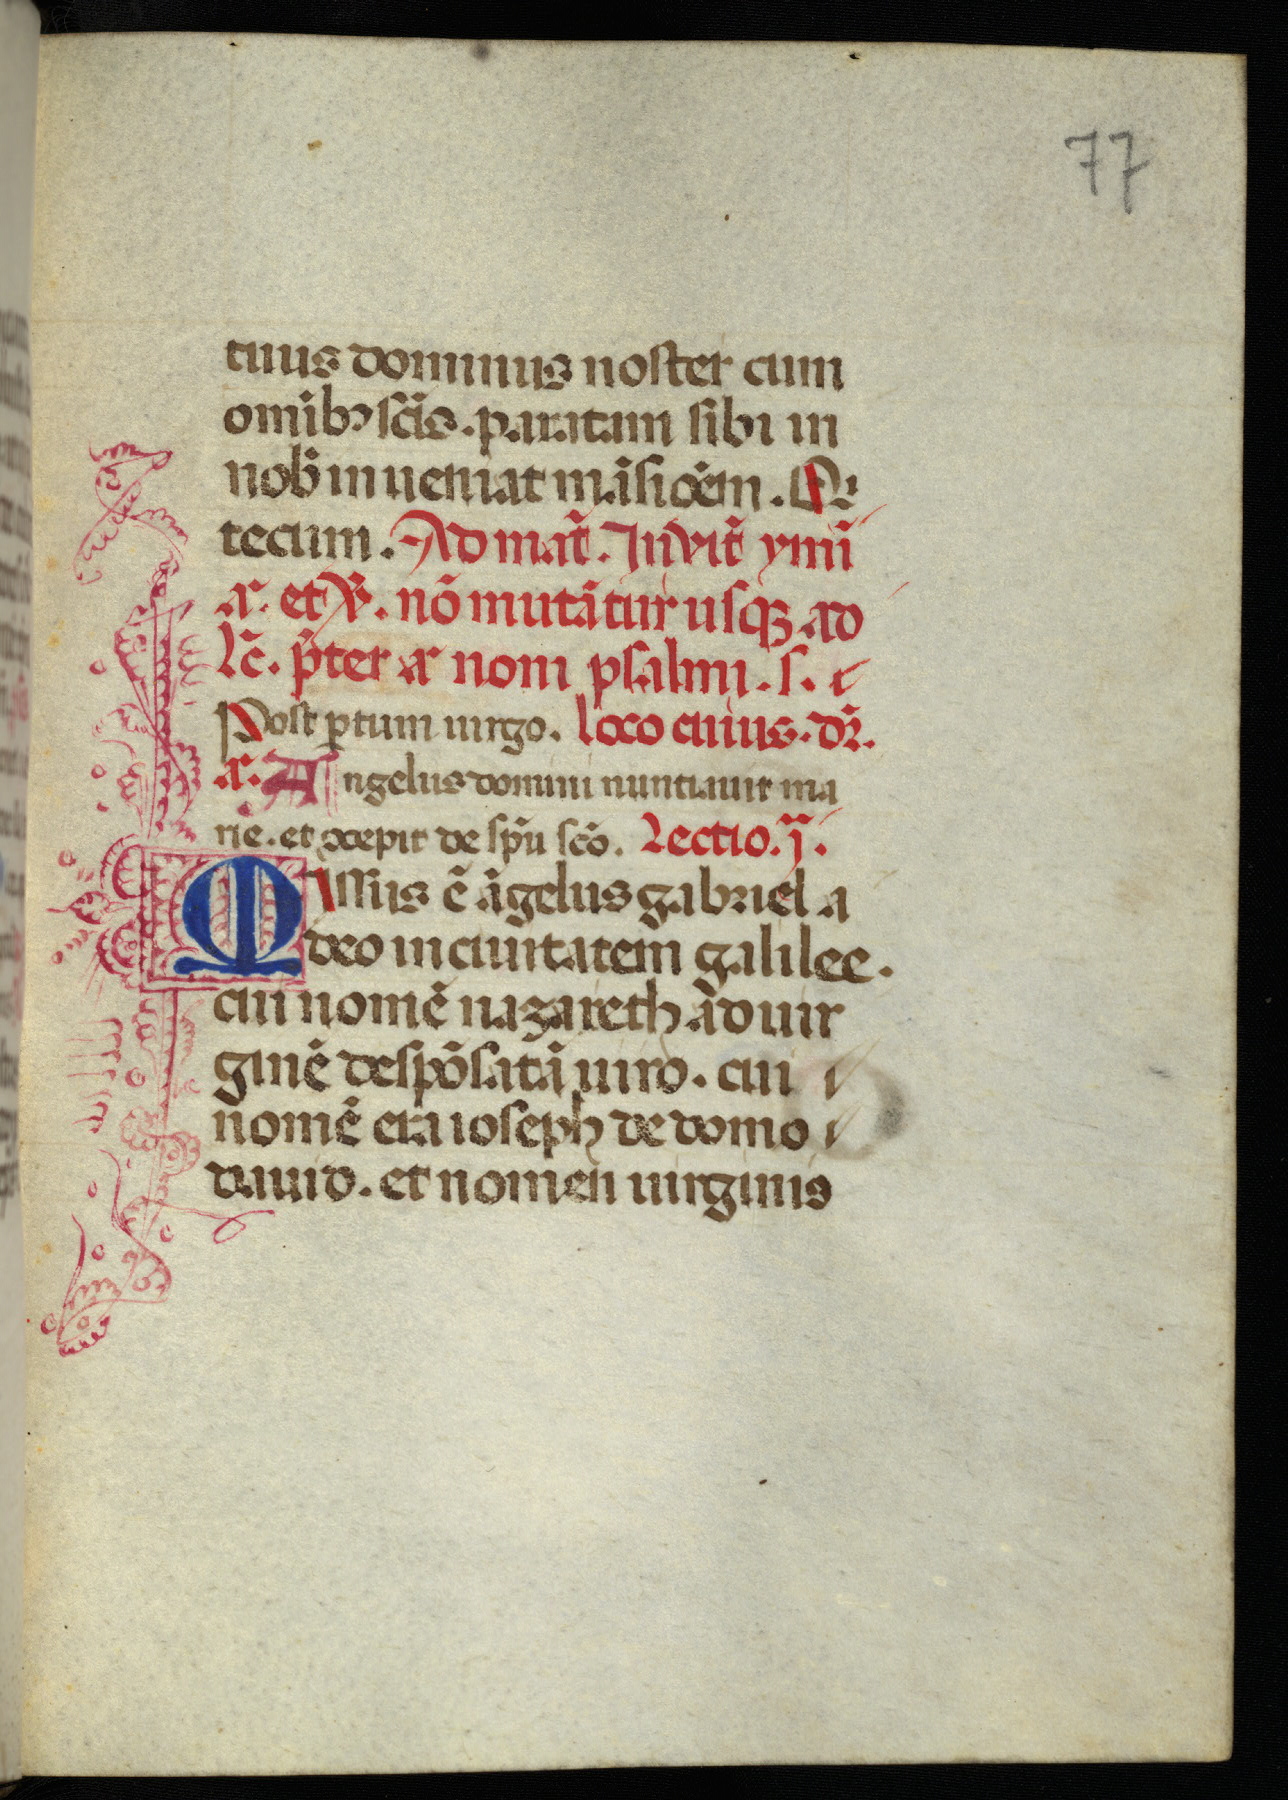 77
tuus dominus noster cum
omĩbꝫ sc̃is. paratam sibi in
nob̃ inueniat mãsiõem. Qi
tecum. Ad mat̃. Inuit̃ ymñ
a. et ℣. nõ mutãtur usqꝫ ad
lc̃. p̃ter a noni psalmi. s.
Post ꝑtum uirgo. loco cuius. dr̃.
a. Angelus domini nuntiauit ma
rie. et ↄcepit de sp̃u sc̃o. Lectio. j̃.
Missus ẽ ãgelus gabriel a
deo in ciuitatem galilee.
cui nomẽ nazareth ad uir
ginẽ despõsatã uiro. cui
nomẽ era ioseph de domo
dauid. et nomen uirginis